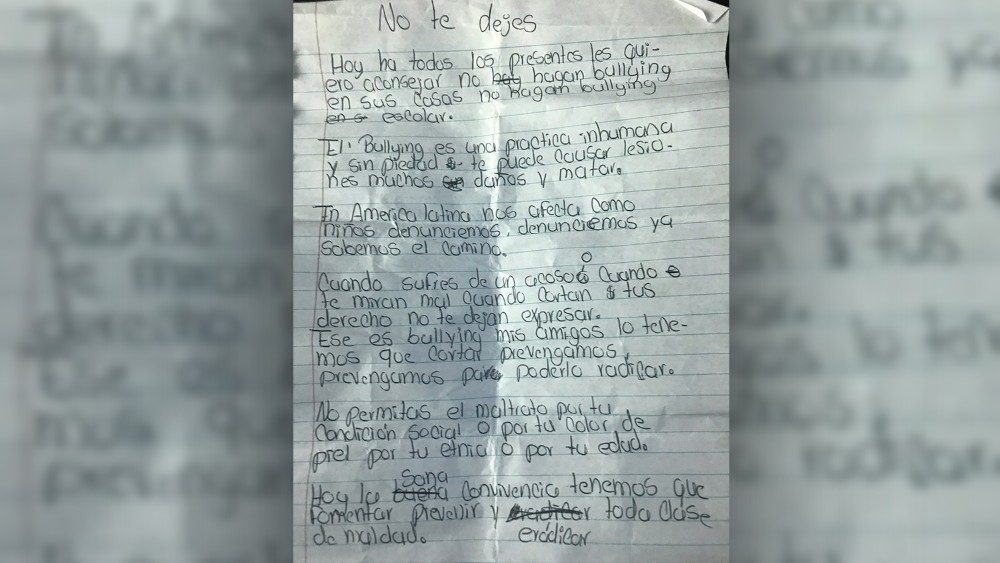 No te dejes
Hoy ha todos los presentes les qui-
ero aconsejar no hagan bullying
en sus casas no hagan bullying
escolar.
El Bullying es una practica inhumana
y sin piedad te puede causar lesio-
nes muchos daños y matar.
En America latina nos afecta como
niños denunciemos, denunciemos ya
sabemos el camino.
Cuando sufres de un acoso o cuando
te miran mal cuando cortan tus
derecho no te dejan expresar.
Ese es bullying mis amigos lo tene-
mos que cortar prevengamos,
prevengamos para poderlo radicar.
No permitas el maltrato por tu
condición social o por tu color de
piel por tu etnia o por tu edad.
Hoy la sana convivencia tenemos que
fomentar prevenir y erádicar toda clase
de maldad.